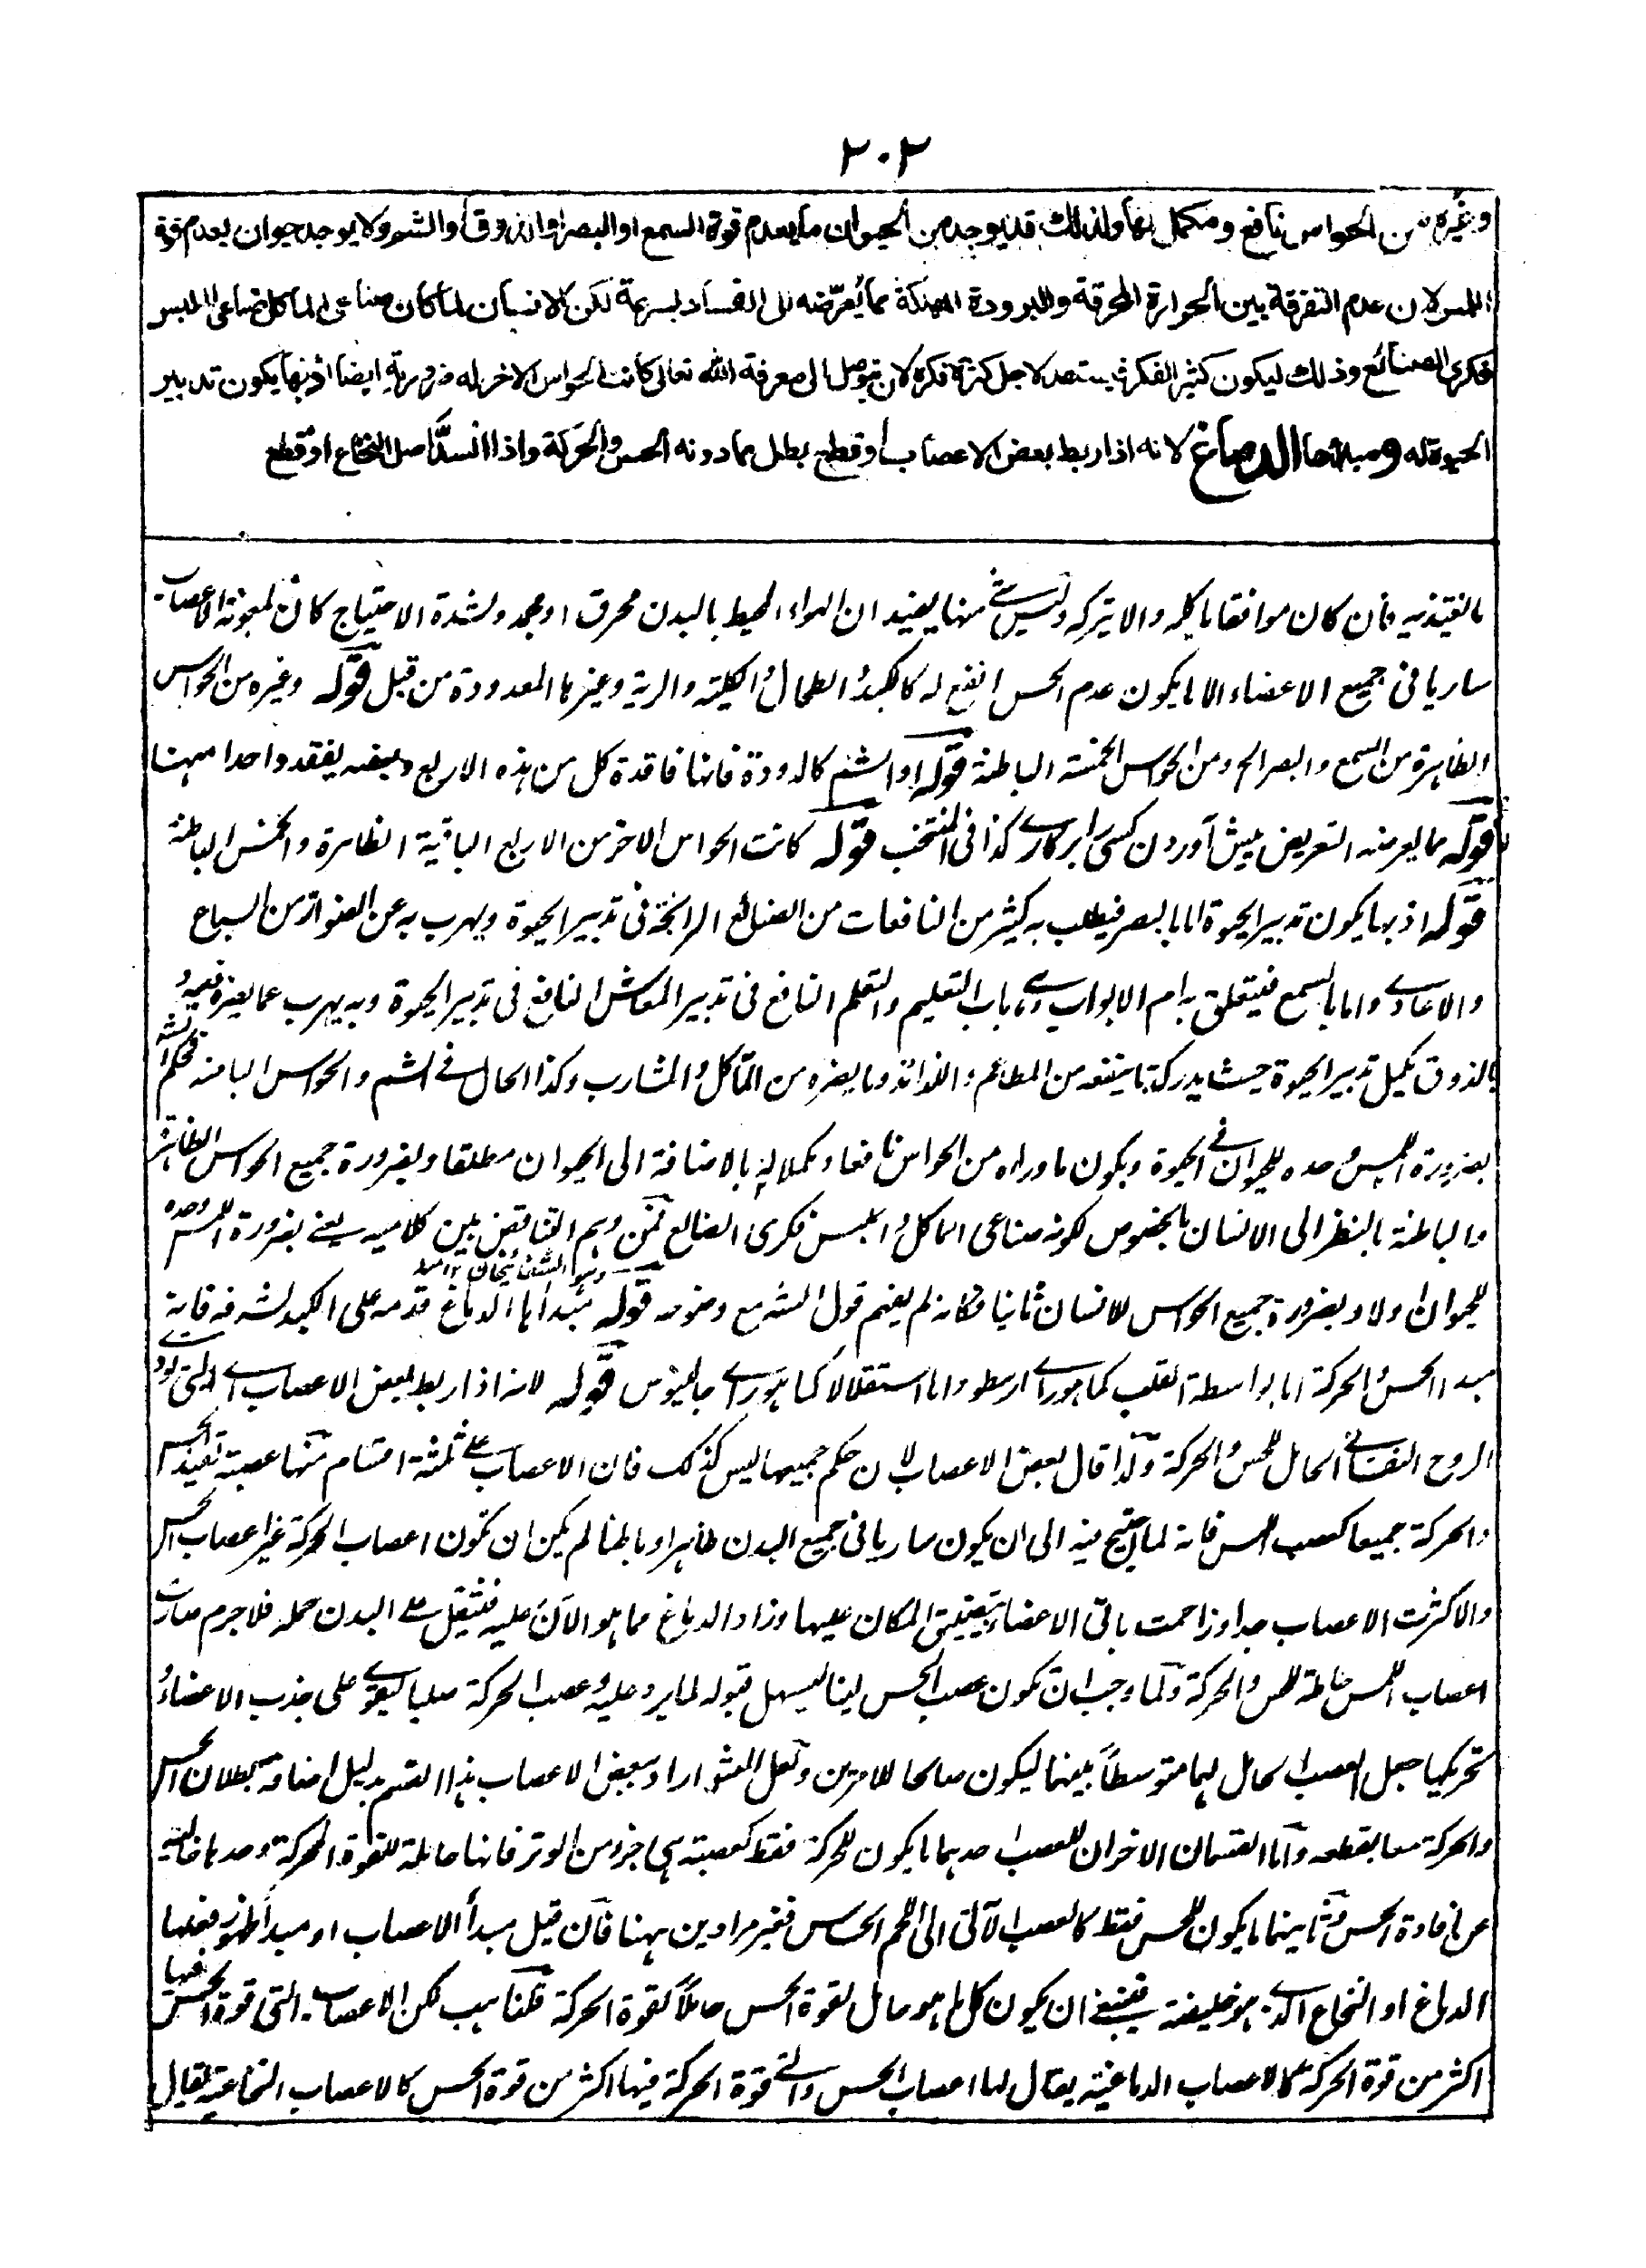 ٢٠٢
وغيره من الحواس نافع ومكمل لها ولذلك قد يوجد من الحيوان ما يعدم قوة السمع او البصر او الذوق او الشم ولا يوجد حيوان يعدم قوة
اللمس لان عدم التفرقة بين الحرارة المحرقة والبرودة المهلكة مما يُعرّضه الى الفساد بسرعة لكن الانسان لما كان صناعى المأكل صناعى الملبس
فكرى الصنائع وذلك ليكون كثير الفكر فيستعد لاجل كثرة فكره لان يتوصل الى معرفة الله تعالى كانت الحواس الاخر له ضرورية ايضا اذ بها يكون تدبير
الحيوة له ومبدأها الدماغ لانه اذا ربط بعض الاعصاب او قطع بطل مما دونه الحس والحركة واذا انسدّ اصل النخاع او قطع
بالتغذيه فان كان موافقا ياكله والا يتركه وليس شئ منها يفيد ان الهواء المحيط بالبدن محرق او مجمد ولشدة الاحتياج كان لمعونة الاعصاب
ساريا فى جميع الاعضاء الا ما يكون عدم الحس انفع له كالكبد والطحال والكلية والرية وغيرها المعدودة من قبل قوله وغيره من الحواس
الظاهرة من السمع والبصر الخ ومن الحواس الخمسة الباطنة قوله او الشم كالدودة فانها فاقدة كل من هذه الاربع وبعضه يفقد واحدا منها
قوله مما يعرضه التعريض پيش آوردن كسى را بر كارے كذا فى المنتخب قوله كانت الحواس الاخر من الاربع الباقية الظاهرة والخمس الباطنة
قوله اذ بها يكون تدبير الحيوة اما بالبصر فيطلب به كثير من النافعات من الصنائع الرائجة فى تدبير الحيوة ويهرب به عن الضوار من السباع
والاعادے واما بالسمع فيتعلق به ام الابواب وهى باب التعليم والتعلم النافع فى تدبير المعاش النافع فى تدبير الحيوة وبه يهرب عما يضره
بالذوق تكميل تدبير الحيوة حيث يدرك به ما ينفعه من المطاعم واللذائذ وما يضره من المآكل والمشارب وكذا الحال فى الشم والحواس الباطنة فحكم الشه
بضرورة اللمس وحده للحيوان فى الحيوة وبكون ما وراه من الحواس نافعا ومكملا له بالاضافة الى الحيوان مطلقا وبضرورة جميع الحواس الظاهرة
والباطنة بالنظر الى الانسان بالخصوص لكونه صناعى المأكل والملبس فكرى الصنائع فمن وهم التناقض بين كلاميه يعنى بضرورة اللمس وحده
للحيوان اولا وبضرورة جميع الحواس للانسان ثانيا فكانه لم يفهم قول الشه مع وضوحه قوله مبدأها الدماغ قدمه على الكبد لشرفه فانه
مبدأ الحس والحركة اما بواسطة القلب كما هو راے ارسطو واما استقلالا كما هو راے جالينوس قوله لانه اذا ربط بعض الاعصاب اے التى
الروح النفسانى الحامل للحس والحركة ولذا قال بعض الاعصاب لان حكم جميعها ليس كذلك فان الاعصاب على ثلثة اقسام منها عصبة تفيد الحس
والحركة جميعا كعصب اللمس فانه لما احتيج فيه الى ان يكون ساريا فى جميع البدن ظاهرا وباطنا لم يمكن ان تكون اعصاب الحركة غير اعصاب الحس
والا كثرت الاعصاب جدا وزاحمت باقى الاعضاء بتضييق المكان عليها وزاد الدماغ مما هو الآن عليه فثقل على البدن حمله فلا جرم صارت
اعصاب اللمس حاملة للحس والحركة ولما وجب ان تكون عصب الحس لينا ليسهل قبوله لما يرد عليه وعصب الحركة صلبا ليقوے على جذب الاعضاء و
تحريكها جعل العصب الحامل لهما متوسطاً بينهما ليكون صالحا للامرين ولعل المش اراد ببعض الاعصاب هذا القسم بدليل اضافة بطلان الحس
والحركة معا بقطعه واما القسمان الاخران للعصب احدهما ما يكون للحركة فقط كعصبة هى جزء من الوتر فانها حاملة للقوة المحركة وحدها خالية
عن افادة الحس وثانيهما ما يكون للحس فقط كالعصب الآتى الى اللحم الحساس فغير مرادين ههنا فان قيل مبدأ الاعصاب او مبدأ ظهور فعلها
الدماغ او النخاع الذى هو خليفته فينبغى ان يكون كل ما هو حامل لقوة الحس حاملاً لقوة الحركة قلنا هب لكن الاعصاب التى قوة الحس فيها
اكثر من قوة الحركة كالاعصاب الدماغية يقال لها اعصاب الحس والتى قوة الحركة فيها اكثر من قوة الحس كالاعصاب النخاعية يقال